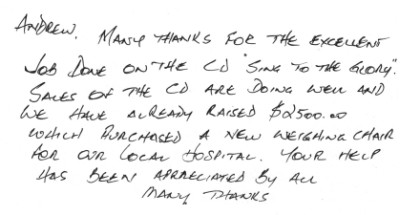 ANDREW. MANY THANKS FOR THE EXCELLENT
JOB DONE ON THE CD "SING TO THE GLORY".
SALES OF THE CD ARE DOING WELL AND
WE HAVE ALREADY RAISED $2500.00
WHICH PURCHASED A NEW WEIGHING CHAIR
FOR OUR LOCAL HOSPITAL. YOUR HELP
HAS BEEN APPRECIATED BY ALL
MANY THANKS